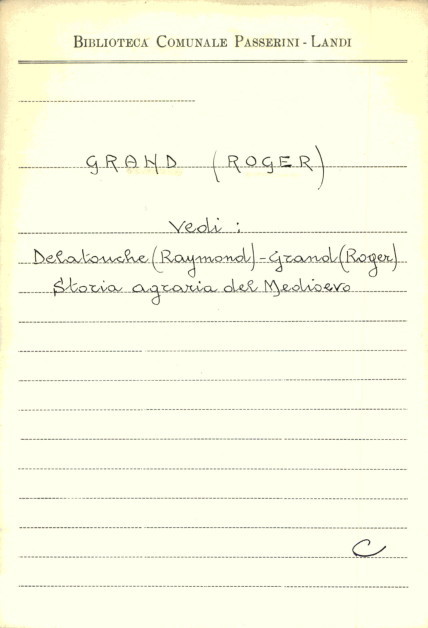 BIBLIOTECA COMUNALE PASSERINI - LANDI
GRAND (ROGER)
Vedi :
Delatouche (Raymond) - Grand (Roger)
Storia agraria del Medioevo
C